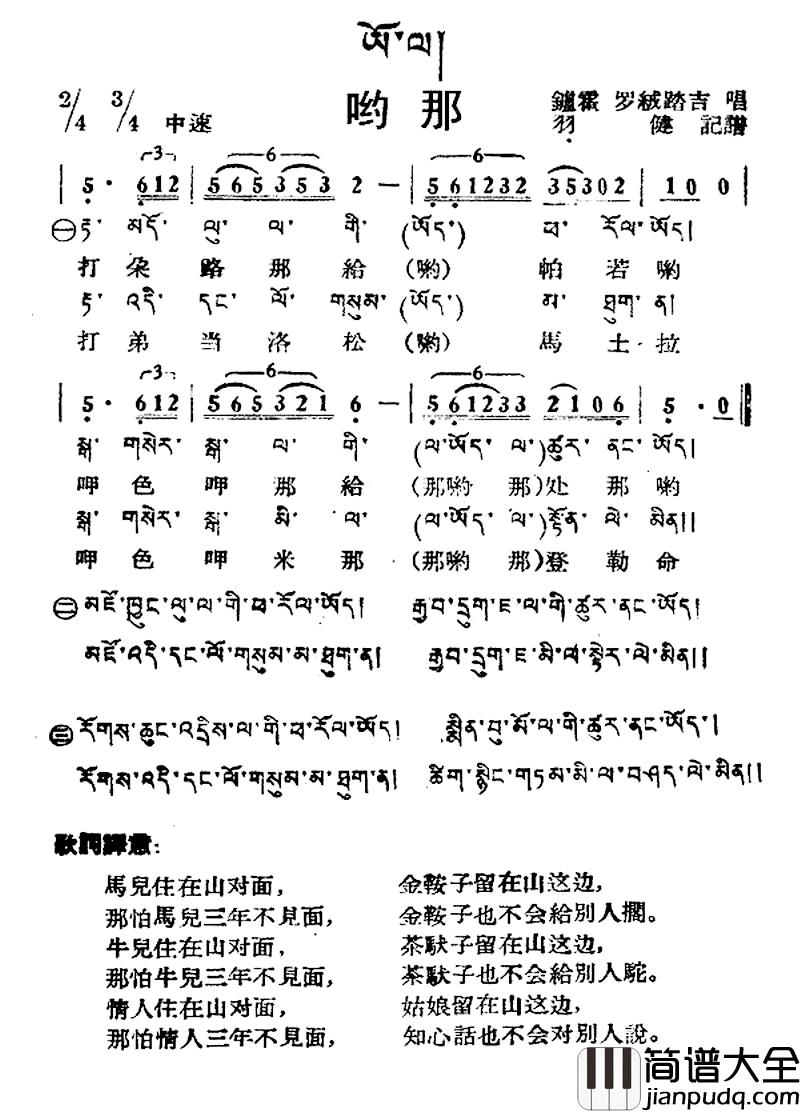 ཨོ་ལ།
哟那
2/4 3/4 中速
鑪霍 罗絨踏吉 唱
羽健 記譜
5· 612 | 565353 2 — | 561232 35302 | 10 0 |
㊀ རྟ་ མདོ་ ལུ་ ལ་ གི་ (ཨོད་) ཕ་ རོལ་ཨོད།
打朵路那給(喲) 帕若喲
རྟ་ འདི་ དང་ ལོ་ གསུམ་ (ཨོད་) མ་ ཐུག་ ན།
打弟当洛松(喲) 馬土拉
5· 612 | 565321 6 — | 561233 2106 | 5 · 0 ‖
སྒ་ གསེར་ སྒ་ ལ་ གི་ (ལ་ཨོད་ ལ་)ཚུར་ ནང་ ཨོད།
呷色呷那給(那喲那)处那喲
སྒ་ གསེར་ སྒ་ མི་ ལ་ (ལ་ཨོད་ ལ་)སྟོན་ ལེ་ མིན།།
呷色呷米那(那喲那)登勒命
㊁ མཛོ་ཁྱུང་ལུ་ལ་གི་ཕ་རོལ་ཨོད། རྒྱབ་དྲུག་ཇ་ལ་གི་ཚུར་ནང་ཨོད།
མཛོ་འདི་དང་ལོ་གསུམ་མ་ཐུག་ན། རྒྱབ་དྲུག་ཇ་མི་ལ་སྟེར་ལེ་མིན།།
㊂ རོགས་ཆུང་འདྲིས་ལ་གི་ཕ་རོལ་ཨོད། སྨིན་བུ་མོ་ལ་གི་ཚུར་ནང་ཨོད་།
རོགས་འདི་དང་ལོ་གསུམ་མ་ཐུག་ན། ཚིག་སྙིང་གཏམ་མི་ལ་བཤད་ལེ་མིན།།
歌詞譯意:
馬兒住在山对面, 金鞍子留在山这边,
那怕馬兒三年不見面, 金鞍子也不会給別人擱。
牛兒住在山对面, 茶馱子留在山这边,
那怕牛兒三年不見面, 茶馱子也不会給別人駝。
情人住在山对面, 姑娘留在山这边,
那怕情人三年不見面, 知心話也不会对別人說。
简谱大全
jianpudq.com